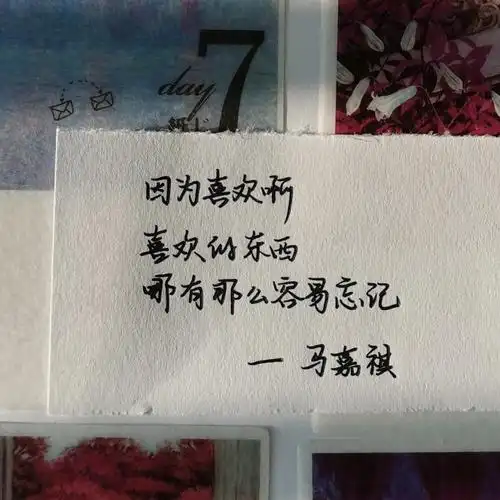 day 7
因为喜欢啊
喜欢的东西
哪有那么容易忘记
— 马嘉祺